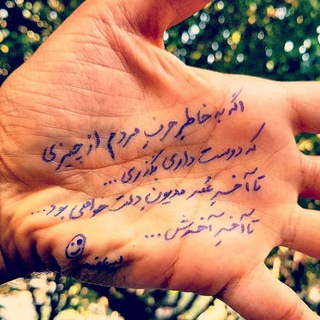 اگه به خاطر حرف مردم از چیزی
که دوست داری بگذری...
تا آخر عمر مدیون دلت خواهی بود...
تا آخرِ آخرش...